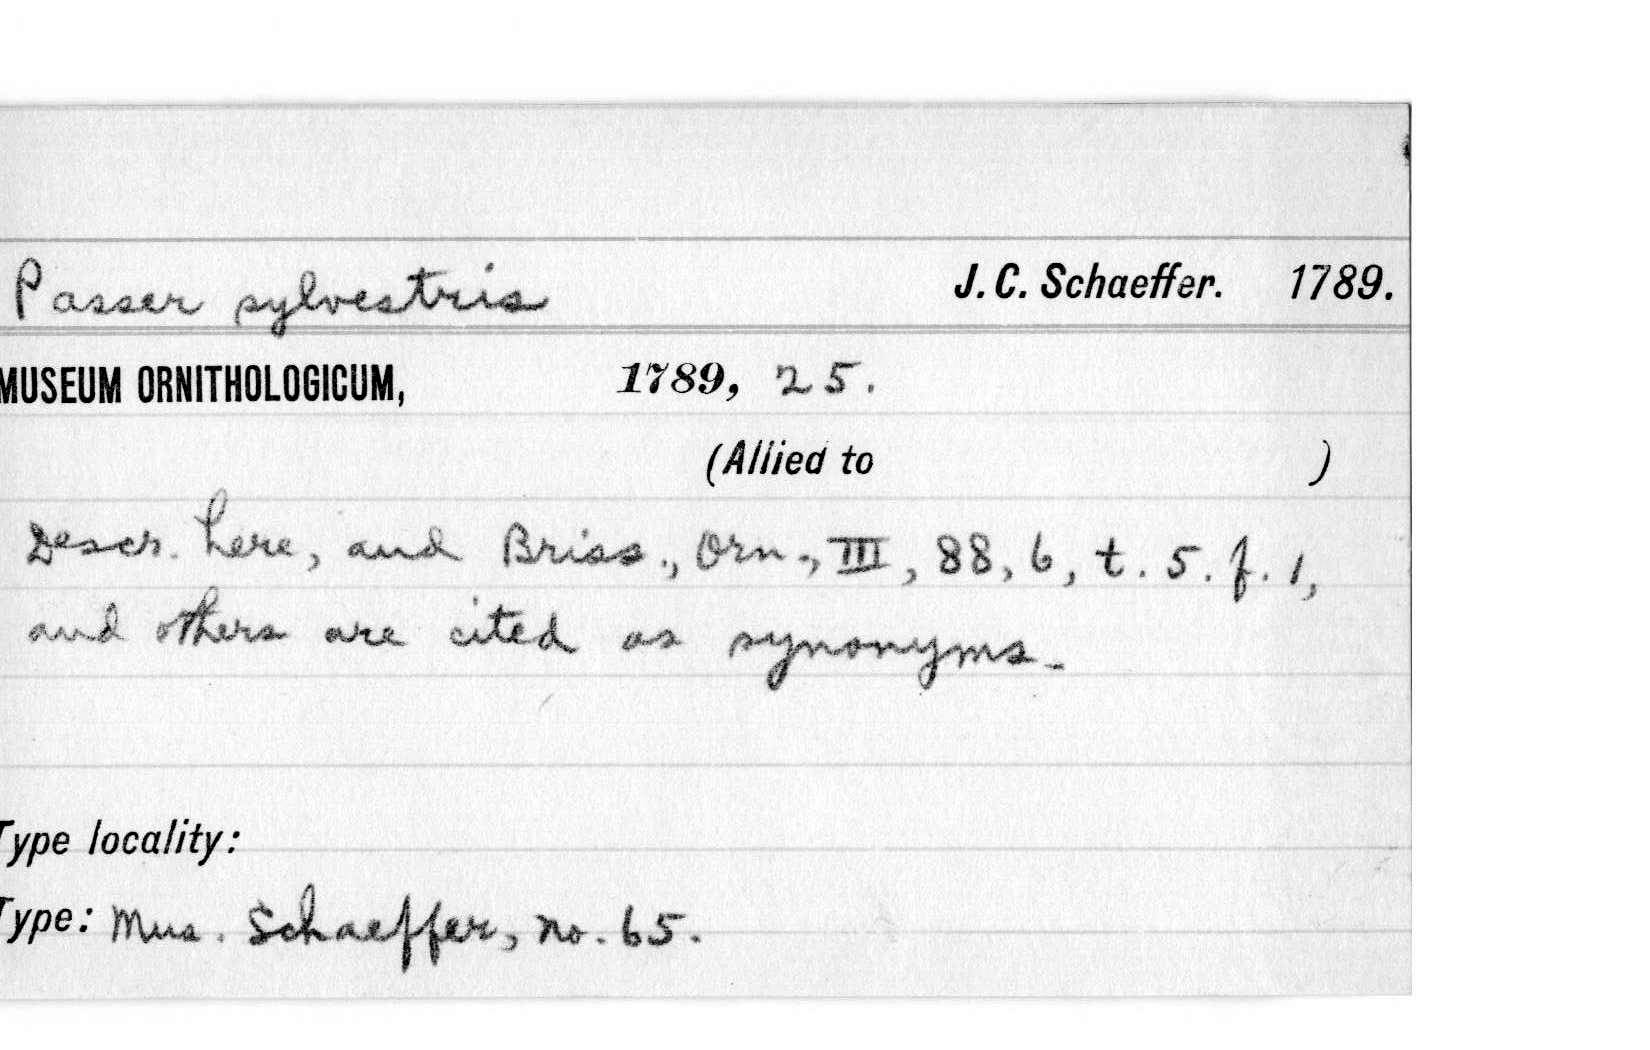 Passer sylvestris J. C. Schaeffer. 1789.
MUSEUM ORNITHOLOGICUM, 1789, 25.
(Allied to )
Descr. here, and Briss., Orn., III, 88, 6, t. 5. f. 1,
and others are cited as synonyms.
Type locality:
Type: Mus. Schaeffer, no. 65.